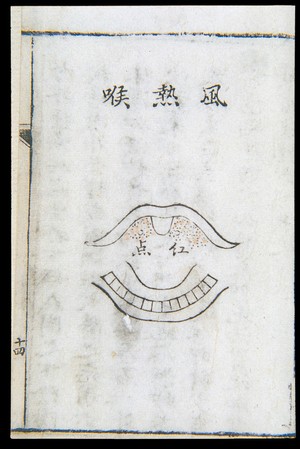 風熱喉
红点
十四